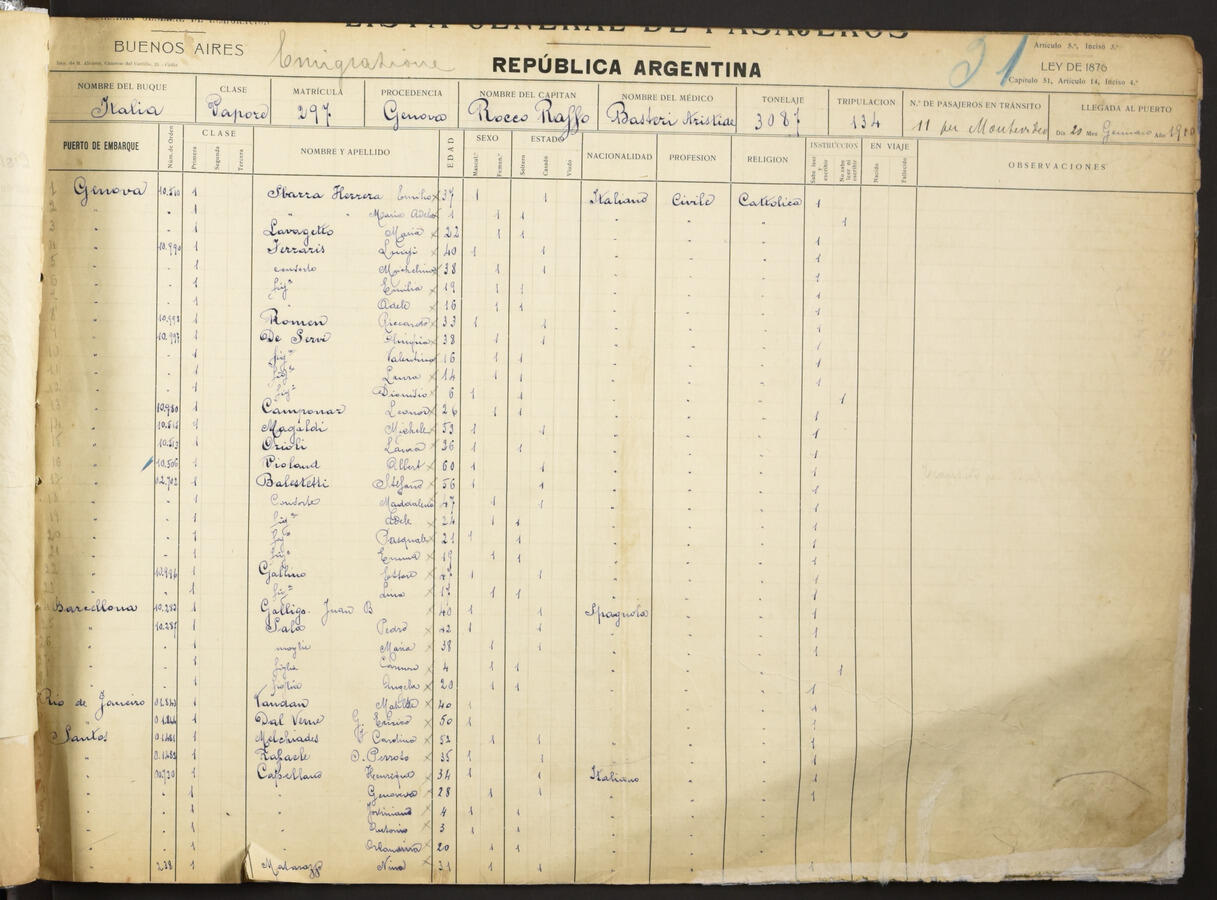 LISTA GENERAL DE PASAJEROS
BUENOS AIRES
Emigrazione
REPÚBLICA ARGENTINA
31
Artículo 5.º, Inciso 3.º
LEY DE 1876
Capítulo 51, Artículo 14, Inciso 4.º
NOMBRE DEL BUQUE CLASE MATRÍCULA PROCEDENCIA NOMBRE DEL CAPITAN NOMBRE DEL MÉDICO TONELAJE TRIPULACION N.º DE PASAJEROS EN TRÁNSITO LLEGADA AL PUERTO
Italia Vapore 297 Genova Rocco Raffo Basteri Aristide 3087 134 11 per Montevideo Día 20 Mes Gennaio Año
PUERTO DE EMBARQUE Núm. de Orden CLASE Primera Segunda Tercera NOMBRE Y APELLIDO EDAD SEXO Mascul.º Femen.º ESTADO Soltero Casado Viudo NACIONALIDAD PROFESION RELIGION INSTRUCCION Sabe leer y escribir No sabe leer ni escribir EN VIAJE Nacido Fallecido OBSERVACIONES
1 Genova 1 Ibarra Herrera Emilio x 37 1 1 Italiano Civile Cattolica 1
2 " 1 " " Maria Adela 1 1 1 " " " 1
3 " 1 Lavagetto Maria x 22 1 1 " " " 1
" 10.990 1 Ferraris Luigi x 40 1 1 " " " 1
" 1 consorte x 38 1 1 " " " 1
" 1 fig.ª Emilia x 19 1 1 " " " 1
" 1 Adele x 16 1 1 " " " 1
" 1 Romen Riccardo x 33 1 1 " " " 1
" 1 De Serve x 38 1 1 " " " 1
" 1 fig.ª Valentina 16 1 1 " " " 1
" 1 fig.ª Laura x 14 1 1 " " " 1
" 1 fig.º Dionisio x 6 1 1 " " " 1
" 10.980 1 Camponar Leonor x 26 1 1 " " " 1
" 1 Magaldi Michele x 53 1 1 " " " 1
" 1 Orioli Laura x 36 1 1 " " " 1
" 10.506 1 Violand Albert x 60 1 1 " " " 1
" 02.702 1 Balestetti Stefano x 56 1 1 " " " 1
" 1 Consorte Maddalena x 47 1 1 " " " 1
" 1 fig.ª Adele x 24 1 1 " " " 1
" 1 Pasquale x 21 1 1 " " " 1
" 1 fig.ª Emma x 19 1 1 " " " 1
" 10.986 1 Gallino Ettore x 1 1 " " " 1
" 1 fig.ª Lina x 17 1 1 " " " 1
Barcellona 10.282 1 Galligo Juan B x 40 1 1 Spagnola " " 1
" 10.287 1 Sala Pedro x 42 1 1 " " " 1
" 1 moglie Maria x 38 1 1 " " " 1
" 1 figlia Carmen x 4 1 1 " " " 1
" 1 Angela x 20 1 1 " " " 1
Rio de Janeiro 1 Vandan Matilde x 40 1 " " " 1
" 1 Dal Verne G. Enrico x 50 1 " " " 1
Santos 1 Melchiades Carolina x 52 1 1 " " " 1
" 1 Rafaele D. Perroto x 35 1 1 " " " 1
" 1 Capellano Henrique x 34 1 1 Italiano " " 1
" 1 Genoviva x 28 1 1 " " " 1
" 1 " x 4 1 1 " " "
" 1 " Antonio x 3 1 1 " " "
" 1 " x 20 1 1 " " "
" 238 1 Matarazzo Nina x 31 1 1 " " " 1